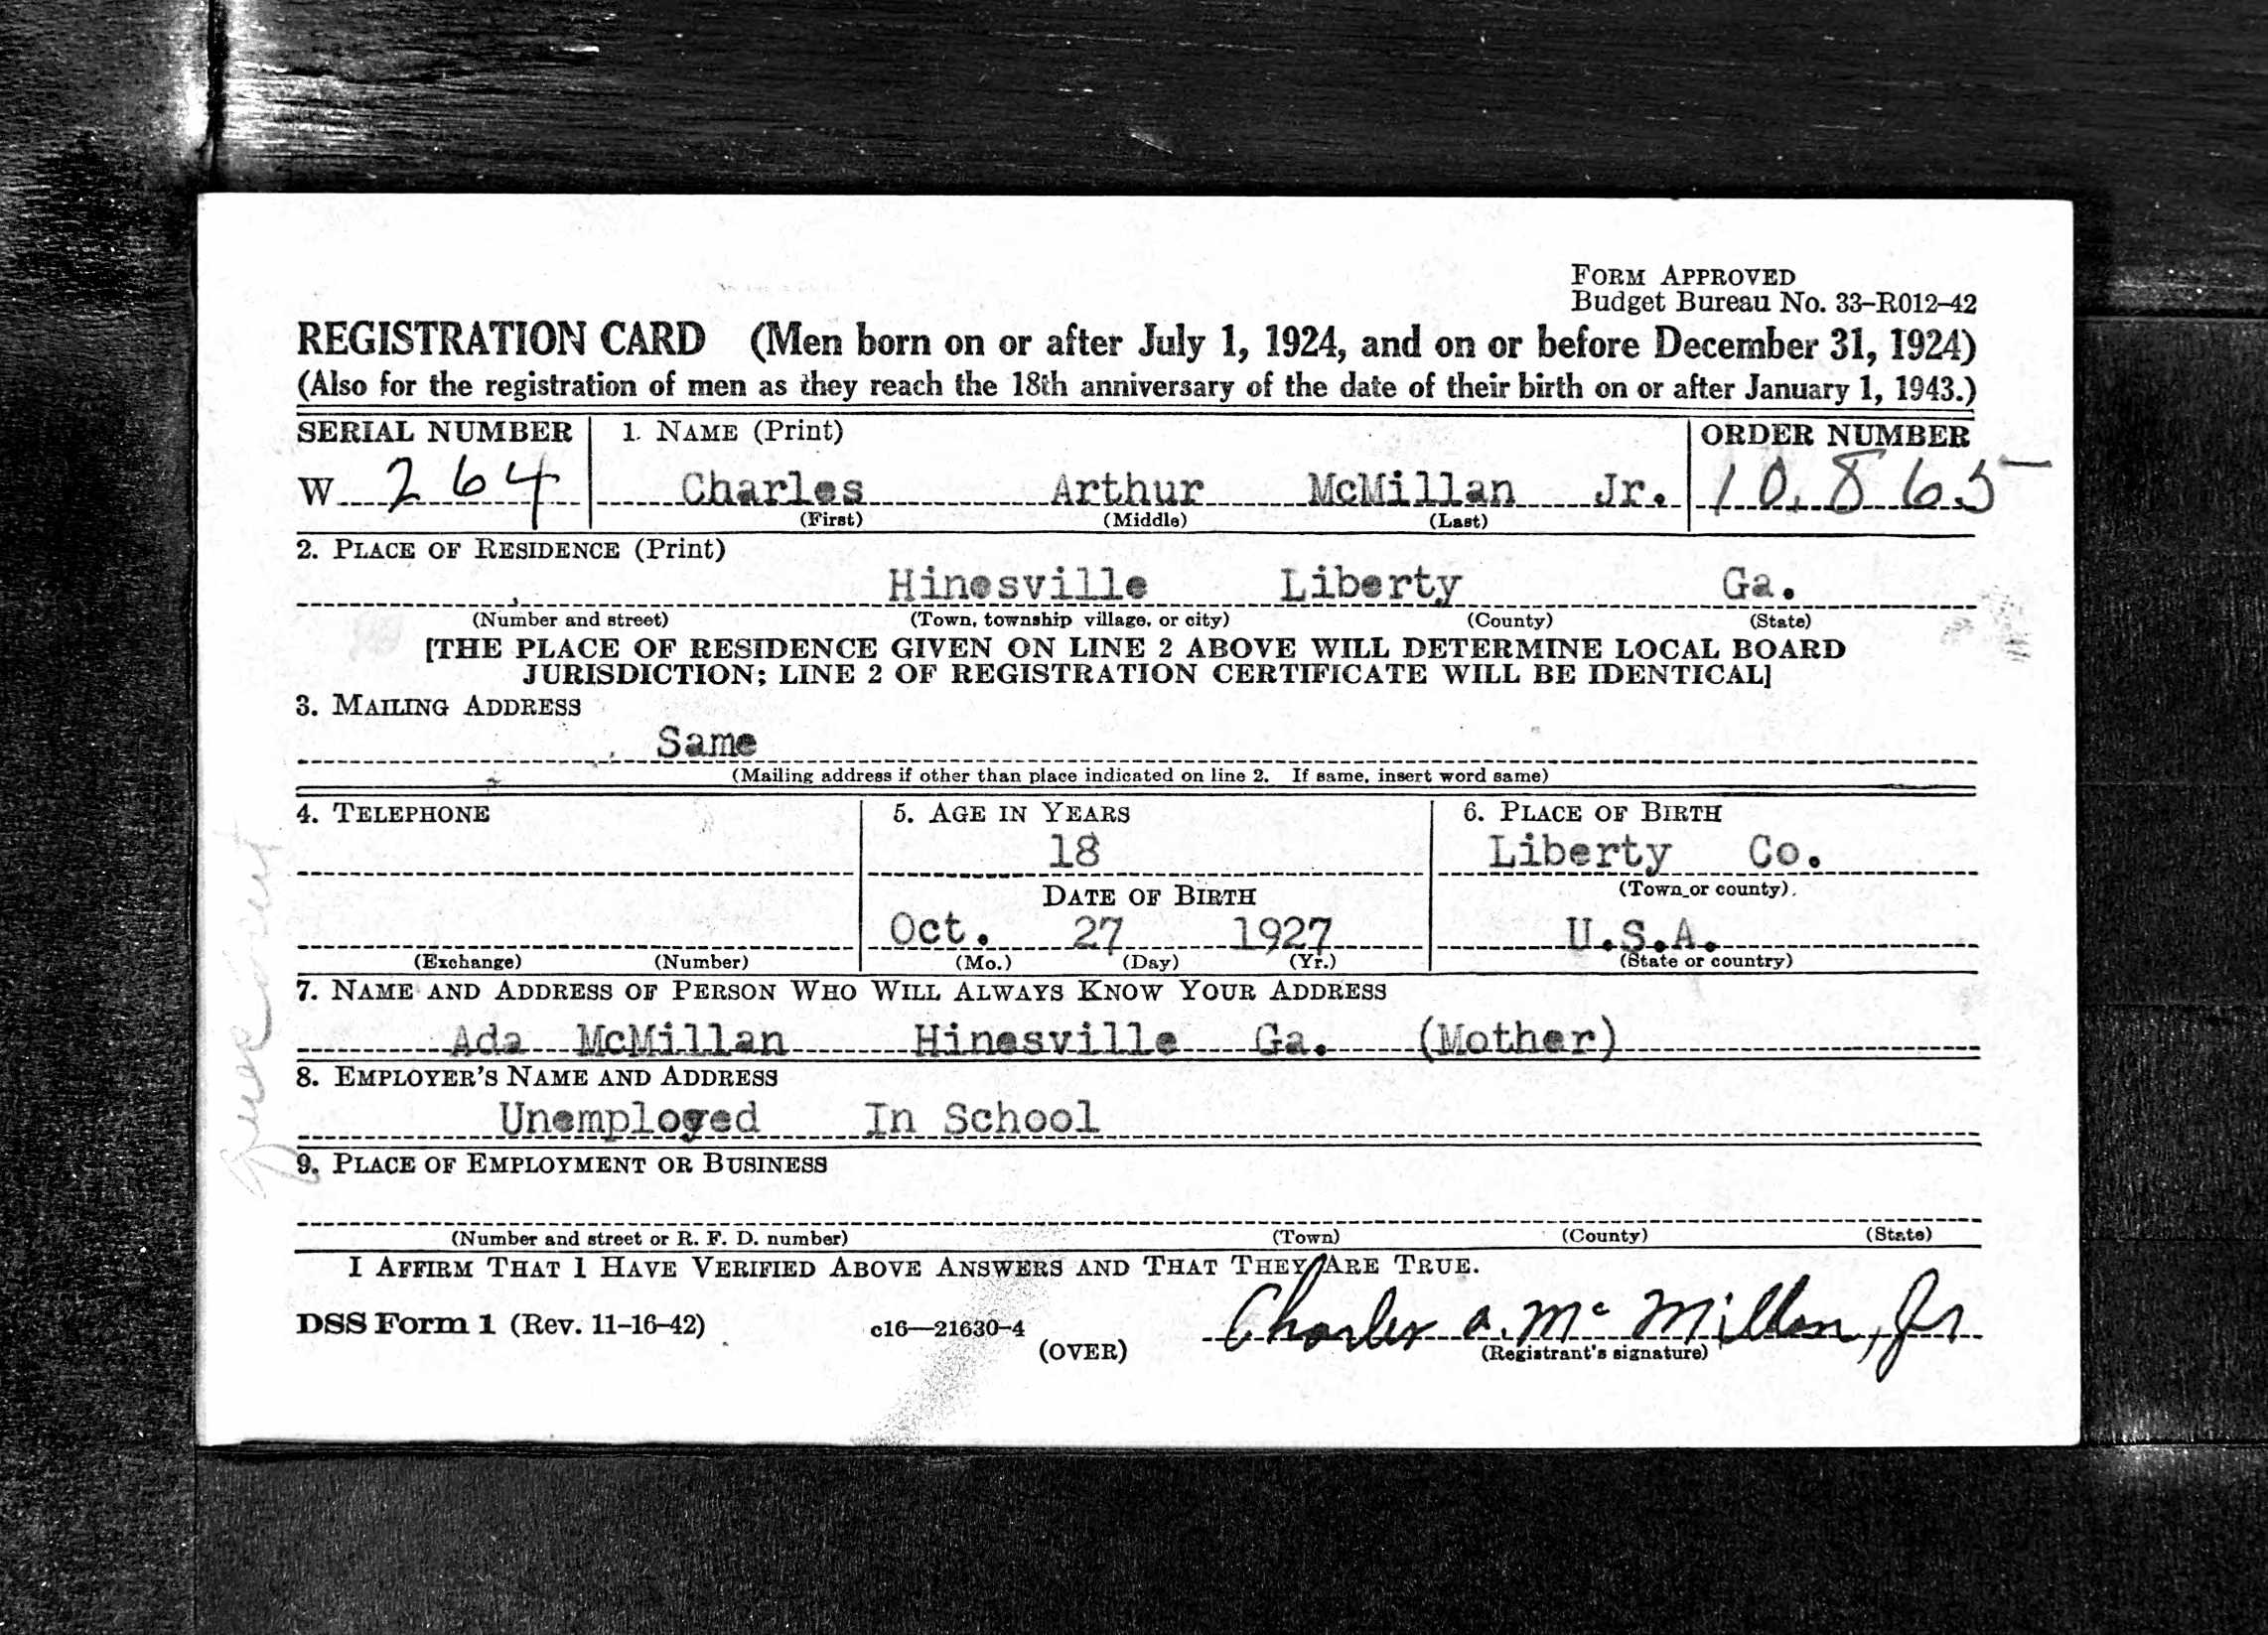 FORM APPROVED
Budget Bureau No. 33-R012-42
REGISTRATION CARD (Men born on or after July 1, 1924, and on or before December 31, 1924)
(Also for the registration of men as they reach the 18th anniversary of the date of their birth on or after January 1, 1943.)
SERIAL NUMBER 1. NAME (Print) ORDER NUMBER
W 264 Charles Arthur McMillan Jr. 10,865
(First) (Middle) (Last)
2. PLACE OF RESIDENCE (Print)
Hinesville Liberty Ga.
(Number and street) (Town, township village, or city) (County) (State)
[THE PLACE OF RESIDENCE GIVEN ON LINE 2 ABOVE WILL DETERMINE LOCAL BOARD
JURISDICTION; LINE 2 OF REGISTRATION CERTIFICATE WILL BE IDENTICAL]
3. MAILING ADDRESS
Same
(Mailing address if other than place indicated on line 2. If same, insert word same)
4. TELEPHONE 5. AGE IN YEARS 6. PLACE OF BIRTH
18 Liberty Co.
DATE OF BIRTH (Town or county)
Oct. 27 1927 U.S.A.
(Exchange) (Number) (Mo.) (Day) (Yr.) (State or country)
7. NAME AND ADDRESS OF PERSON WHO WILL ALWAYS KNOW YOUR ADDRESS
Ada McMillan Hinesville Ga. (Mother)
8. EMPLOYER'S NAME AND ADDRESS
Unemployed In School
9. PLACE OF EMPLOYMENT OR BUSINESS
(Number and street or R. F. D. number) (Town) (County) (State)
I AFFIRM THAT I HAVE VERIFIED ABOVE ANSWERS AND THAT THEY ARE TRUE.
DSS Form 1 (Rev. 11-16-42) c16—21630-4 Charles A. McMillan, Jr
(OVER) (Registrant's signature)